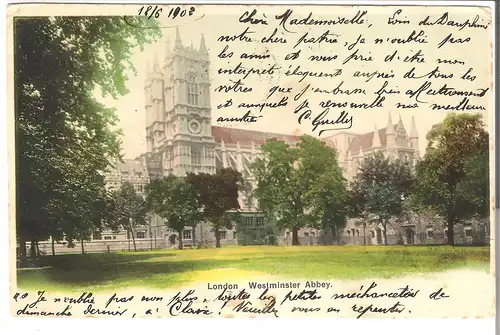 18/5 1902
Chère Mademoiselle, Loin du Dauphiné
notre chère patrie, je n'oublie pas
les amis et vous prie d'être mon
interprêt éloquent auprès de tous les
vôtres que j'embrasse bien affectueusement
et auxquels je renouvelle mon meilleur
amitié
C. Guilles
London Westminster Abbey.
"Je n'oublie pas non plus, toutes les petites méchancetés de
dimanche dernier, à Claix! Veuillez vous en repentir.